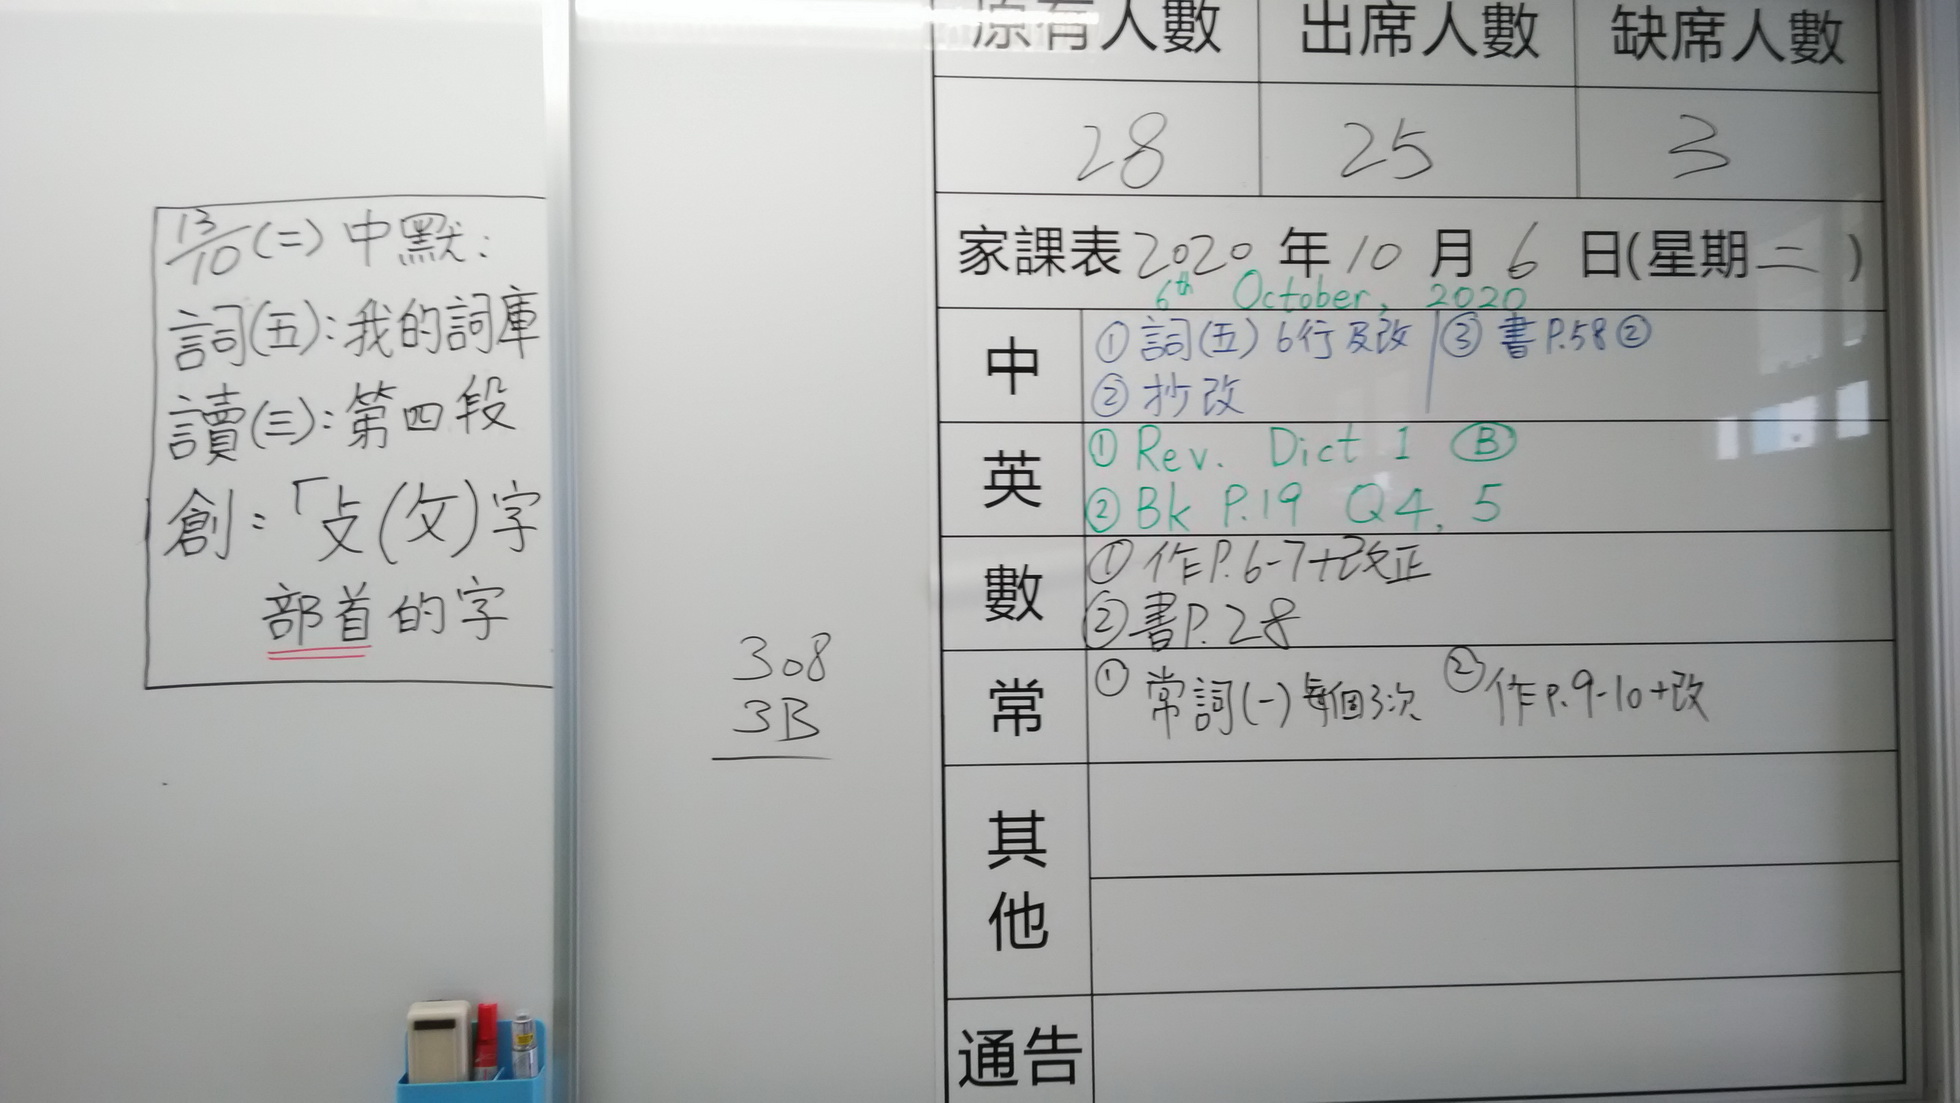 13/10(二)中默:
詞(五):我的詞庫
讀(三):第四段
創:「攴(攵)字
部首的字
308
3B
原有人數 出席人數 缺席人數
28 25 3
家課表2020年10月6日(星期二)
6th October, 2020
中 ①詞(五)6行及改 ③書P.58②
②抄改
英 ①Rev. Dict 1 Ⓑ
②Bk P.19 Q4, 5
數 ①作P.6-7+改正
②書P.28
常 ①常詞(一)每個3次 ②作P.9-10+改
其他
通告